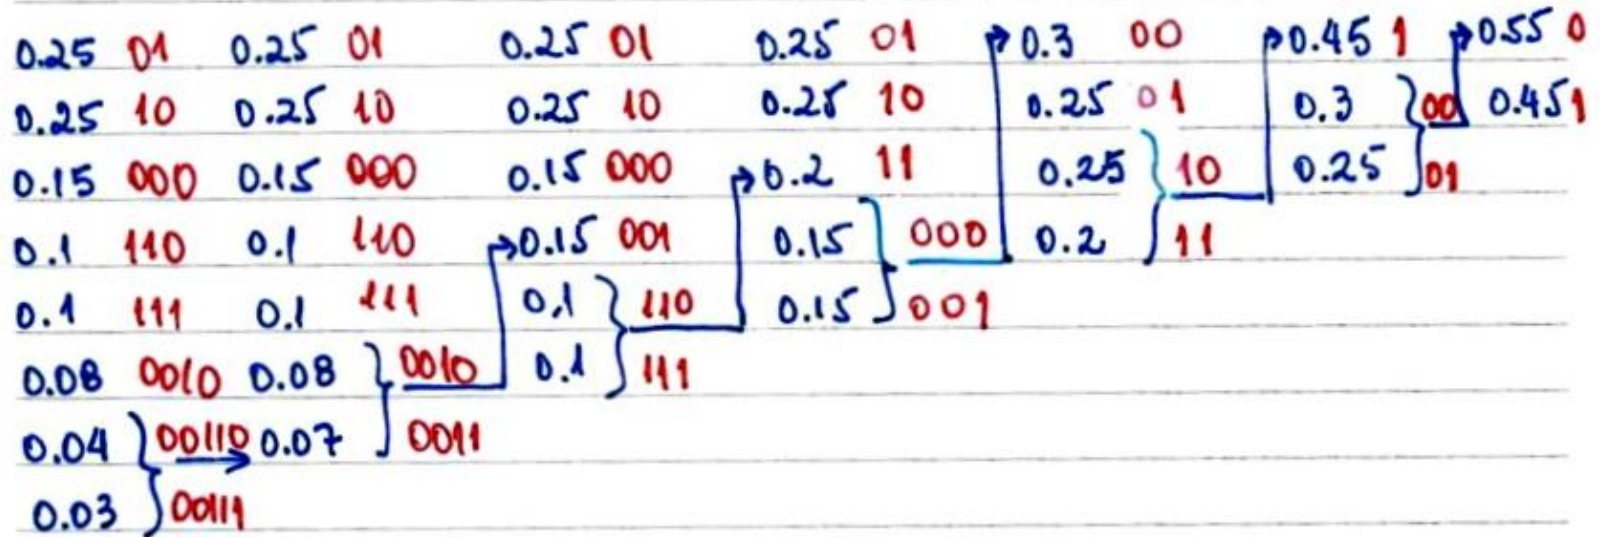 0.25 01 0.25 01 0.25 01 0.25 01 0.3 00 0.45 1 0.55 0
0.25 10 0.25 10 0.25 10 0.25 10 0.25 01 0.3 00 0.45 1
0.15 000 0.15 000 0.15 000 0.2 11 0.25 10 0.25 01
0.1 110 0.1 110 0.15 001 0.15 000 0.2 11
0.1 111 0.1 111 0.1 110 0.15 001
0.08 0010 0.08 0010 0.1 111
0.04 00110 0.07 0011
0.03 00111